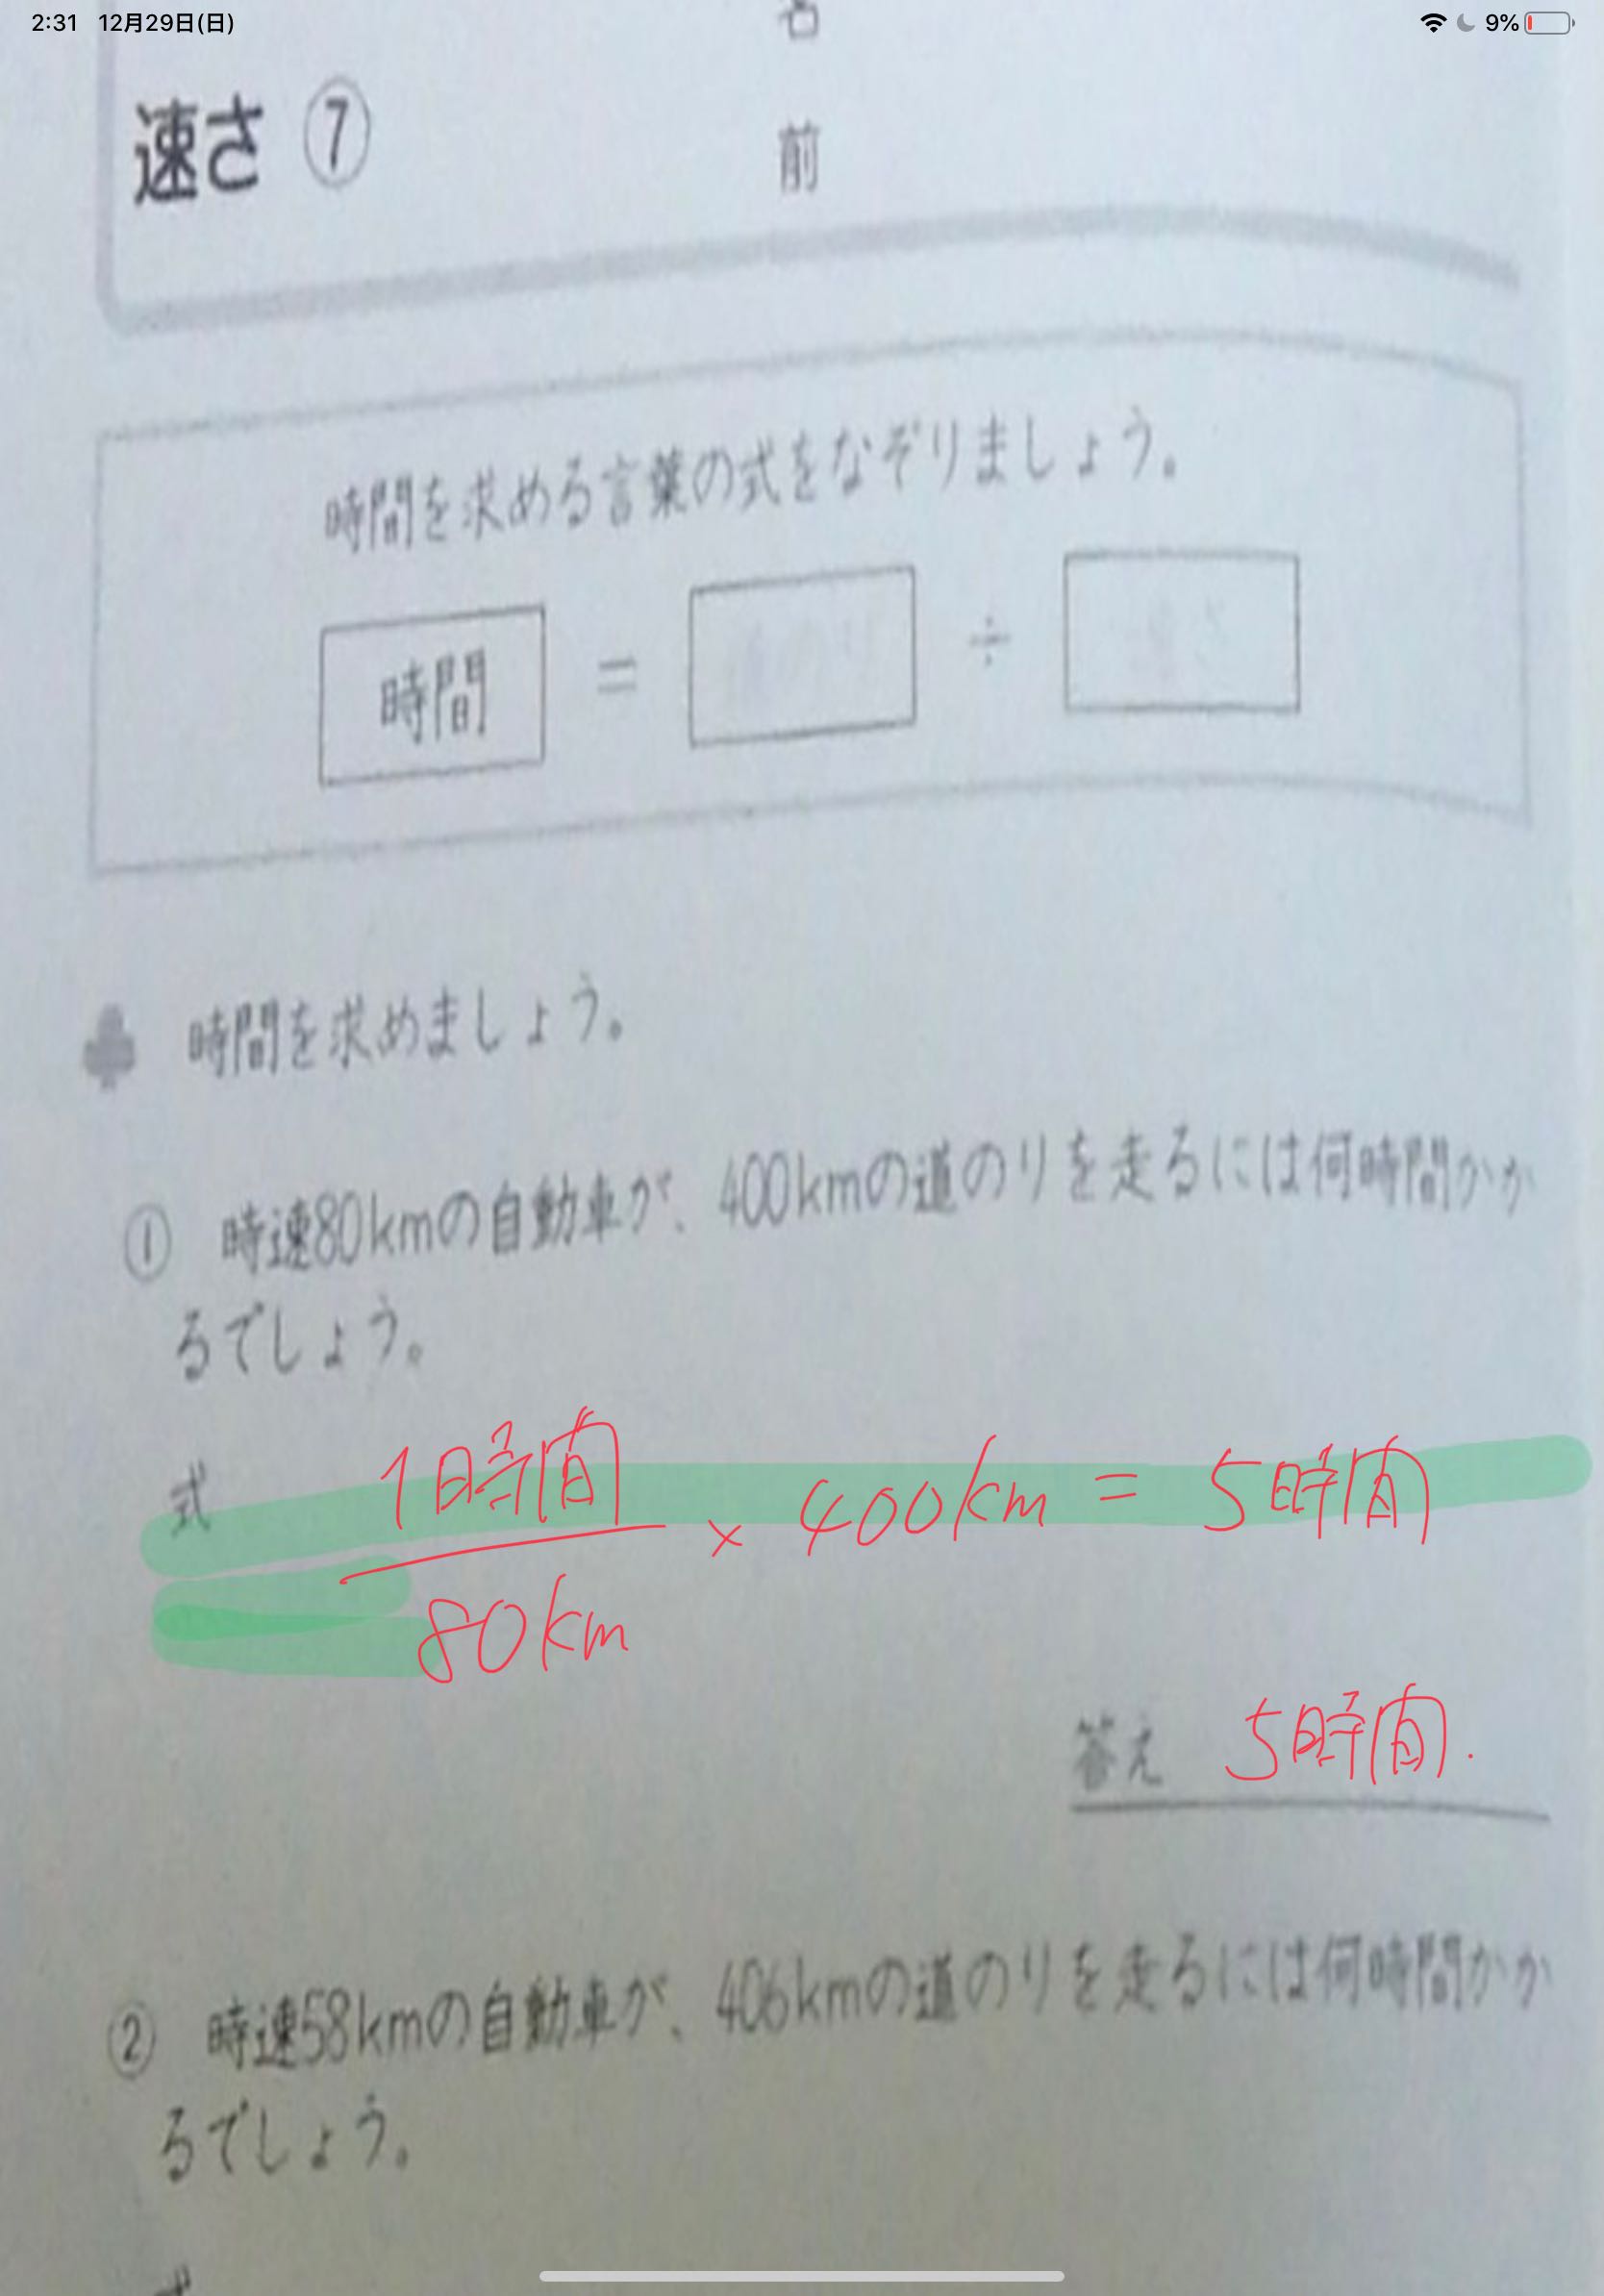 2:31 12月29日(日) 9%
名
前
速さ ⑦
時間を求める言葉の式をなぞりましょう。
時間 = 道のり ÷ 速さ
時間を求めましょう。
① 時速80kmの自動車が、400kmの道のりを走るには何時間かか
るでしょう。
式 1時間/80km × 400km = 5時間
答え 5時間.
② 時速58kmの自動車が、406kmの道のりを走るには何時間かか
るでしょう。